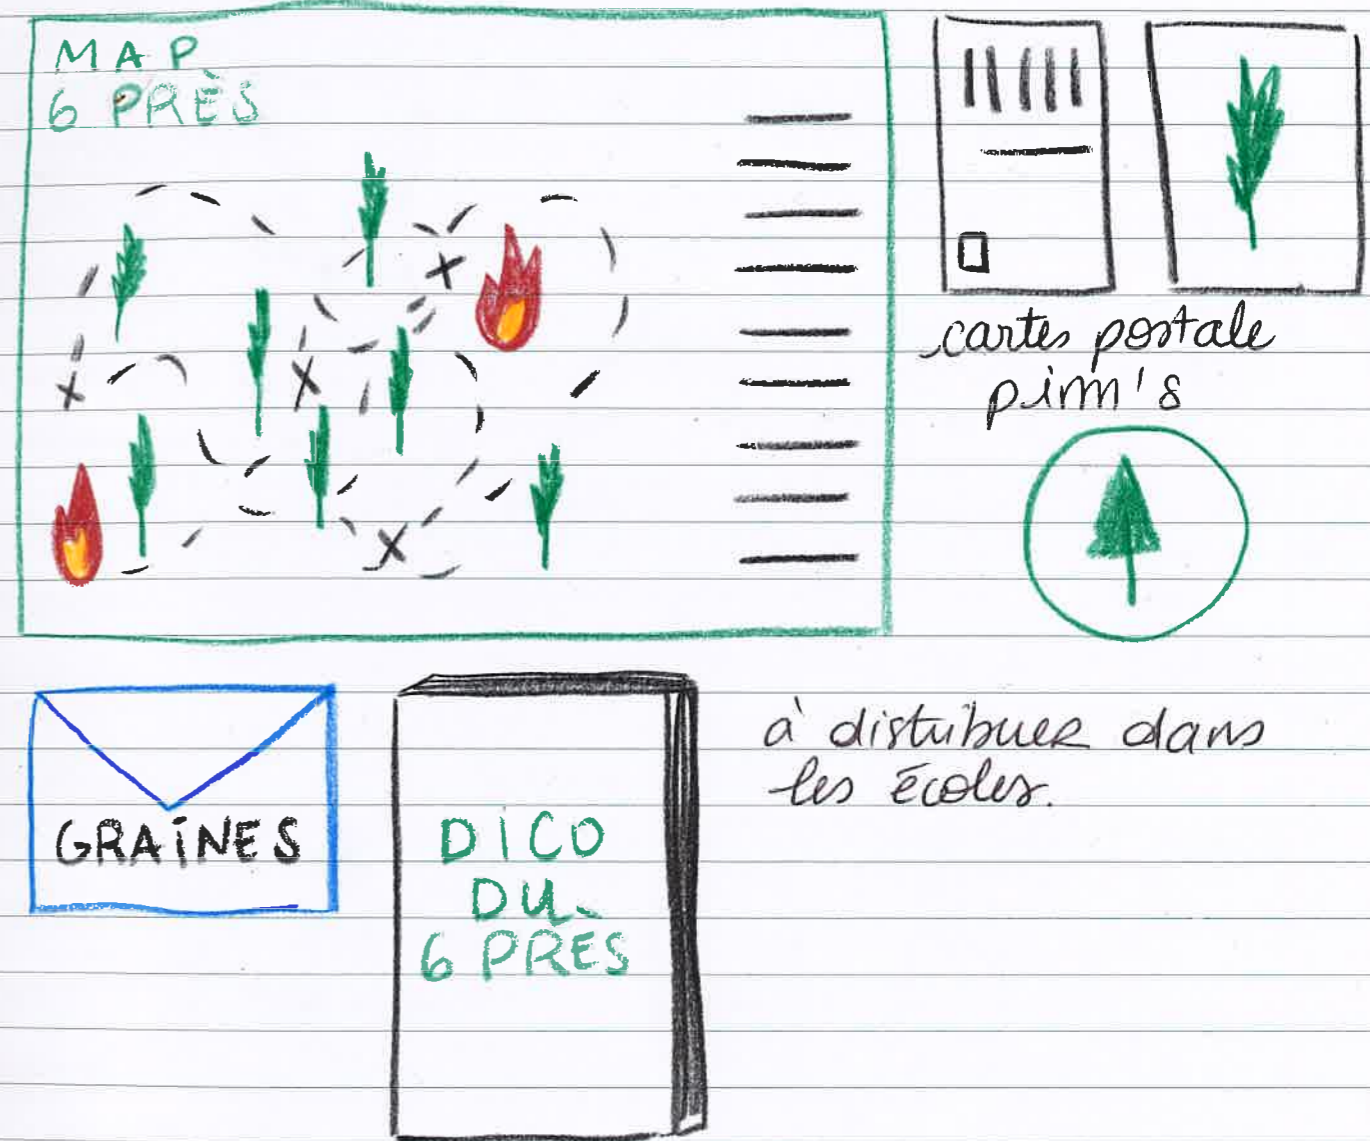 MAP
6 PRÈS
cartes postale
pinm's
GRAiNES
DiCO
DU
6 PRÈS
à distribuer dans
les écoles.